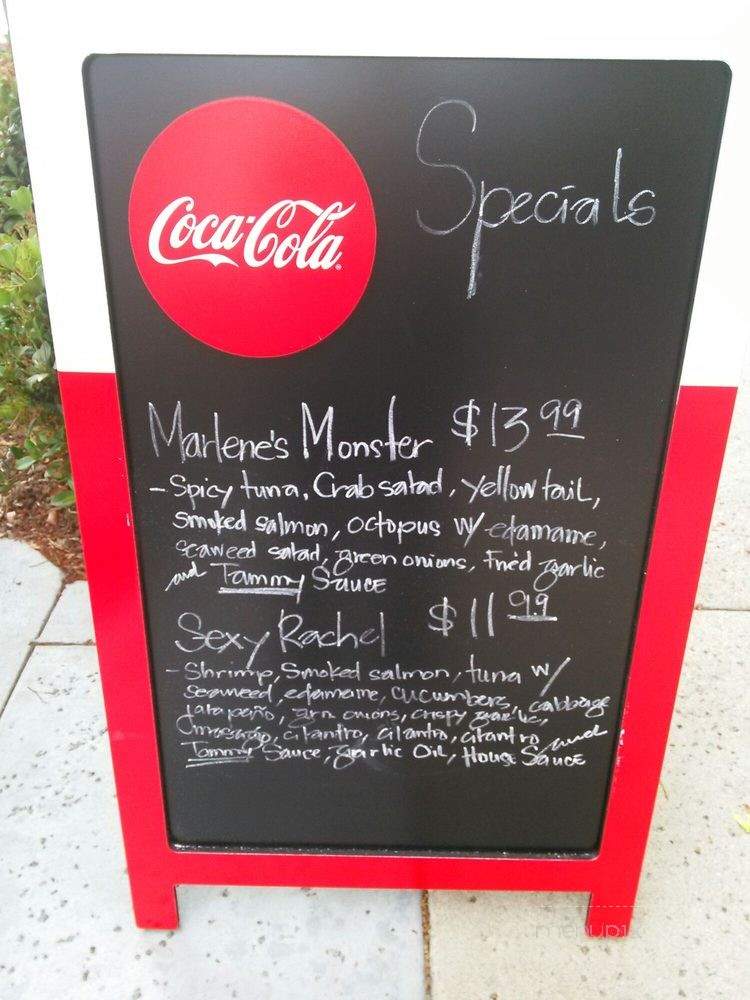 Coca-Cola
Specials
Marlene's Monster $13.99
- Spicy tuna, Crab salad, yellow tail,
Smoked salmon, octopus w/ edamame,
seaweed salad, green onions, fried garlic
and Tammy Sauce
Sexy Rachel $11.99
- Shrimp, Smoked salmon, tuna w/
seaweed, edamame, cucumbers, cabbage
jalapeño, grn onions, crispy garlic,
cilantro, cilantro, cilantro and
Tammy Sauce, garlic Oil, House Sauce